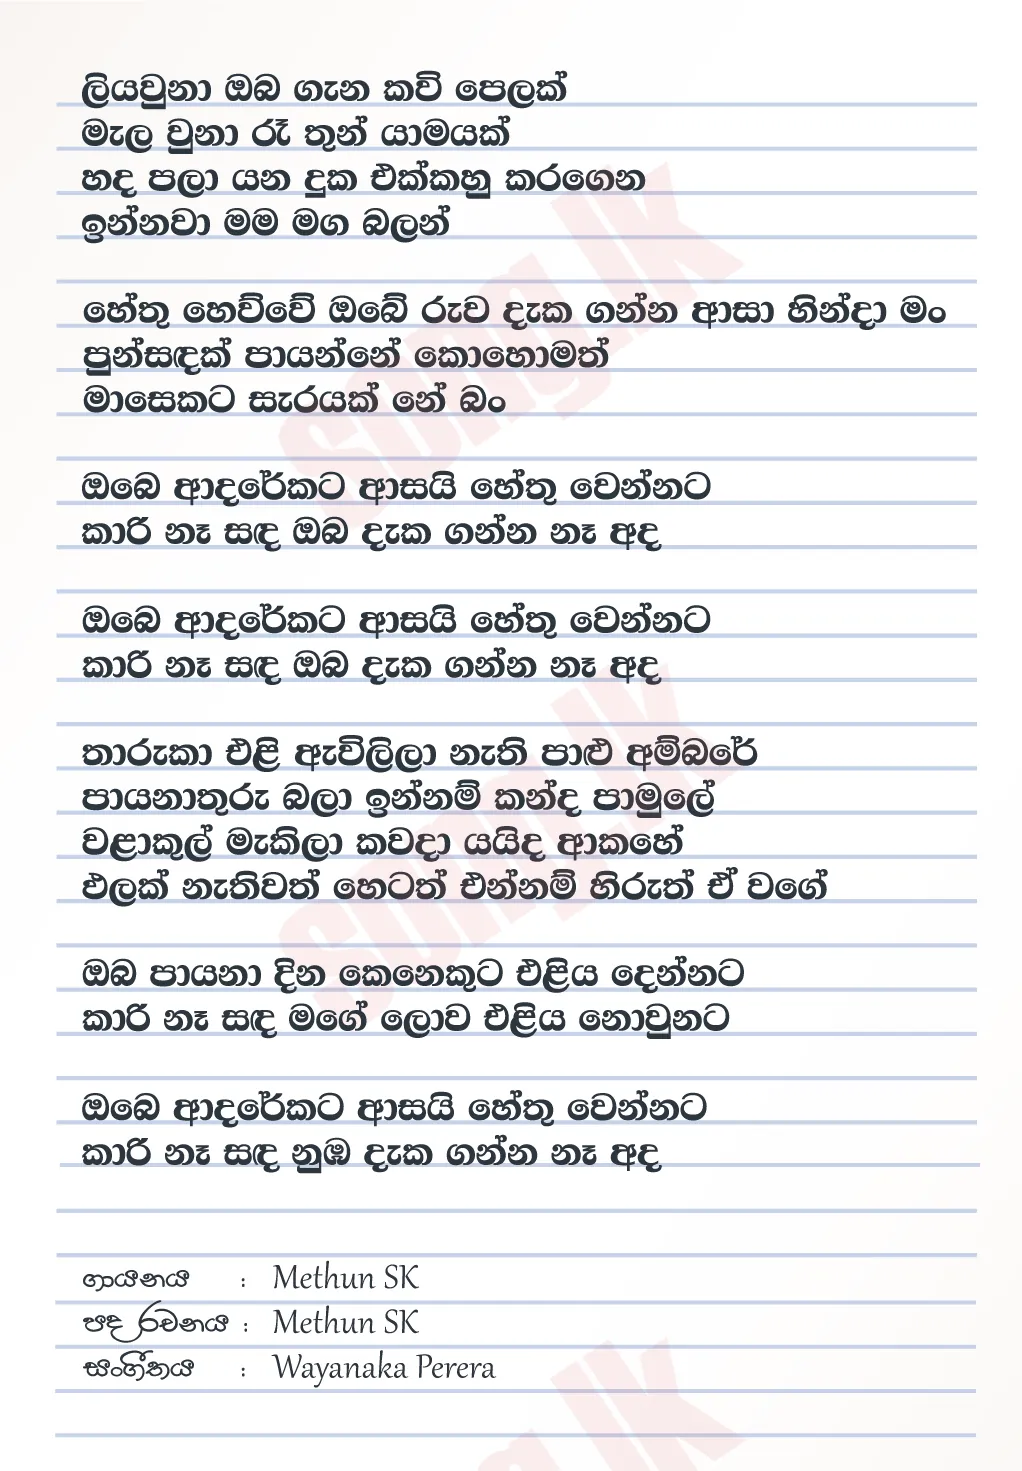 ලියවුනා ඔබ ගැන කවි පෙලක්
මැල වුනා රෑ තුන් යාමයක්
හද පලා යන දුක එක්කහු කරගෙන
ඉන්නවා මම මග බලන්
හේතු හෙව්වේ ඔබේ රුව දැක ගන්න ආසා හින්දා මං
පුන්සඳක් පායන්නේ කොහොමත්
මාසෙකට සැරයක් නේ බං
ඔබෙ ආදරේකට ආසයි හේතු වෙන්නට
කාරි නෑ සඳ ඔබ දැක ගන්න නෑ අද
ඔබෙ ආදරේකට ආසයි හේතු වෙන්නට
කාරි නෑ සඳ ඔබ දැක ගන්න නෑ අද
තාරුකා එළි ඇවිලිලා නැති පාළු අම්බරේ
පායනාතුරු බලා ඉන්නම් කන්ද පාමුලේ
වළාකුල් මැකිලා කවදා යයිද ආකහේ
ඵලක් නැතිවත් හෙටත් එන්නම් හිරුත් ඒ වගේ
ඔබ පායනා දින කෙනෙකුට එළිය දෙන්නට
කාරි නෑ සඳ මගේ ලොව එළිය නොවුනට
ඔබෙ ආදරේකට ආසයි හේතු වෙන්නට
කාරි නෑ සඳ නුඹ දැක ගන්න නෑ අද
ගායනය : Methun SK
පද රචනය : Methun SK
සංගීතය : Wayanaka Perera
song.lk
song.lk
song.lk